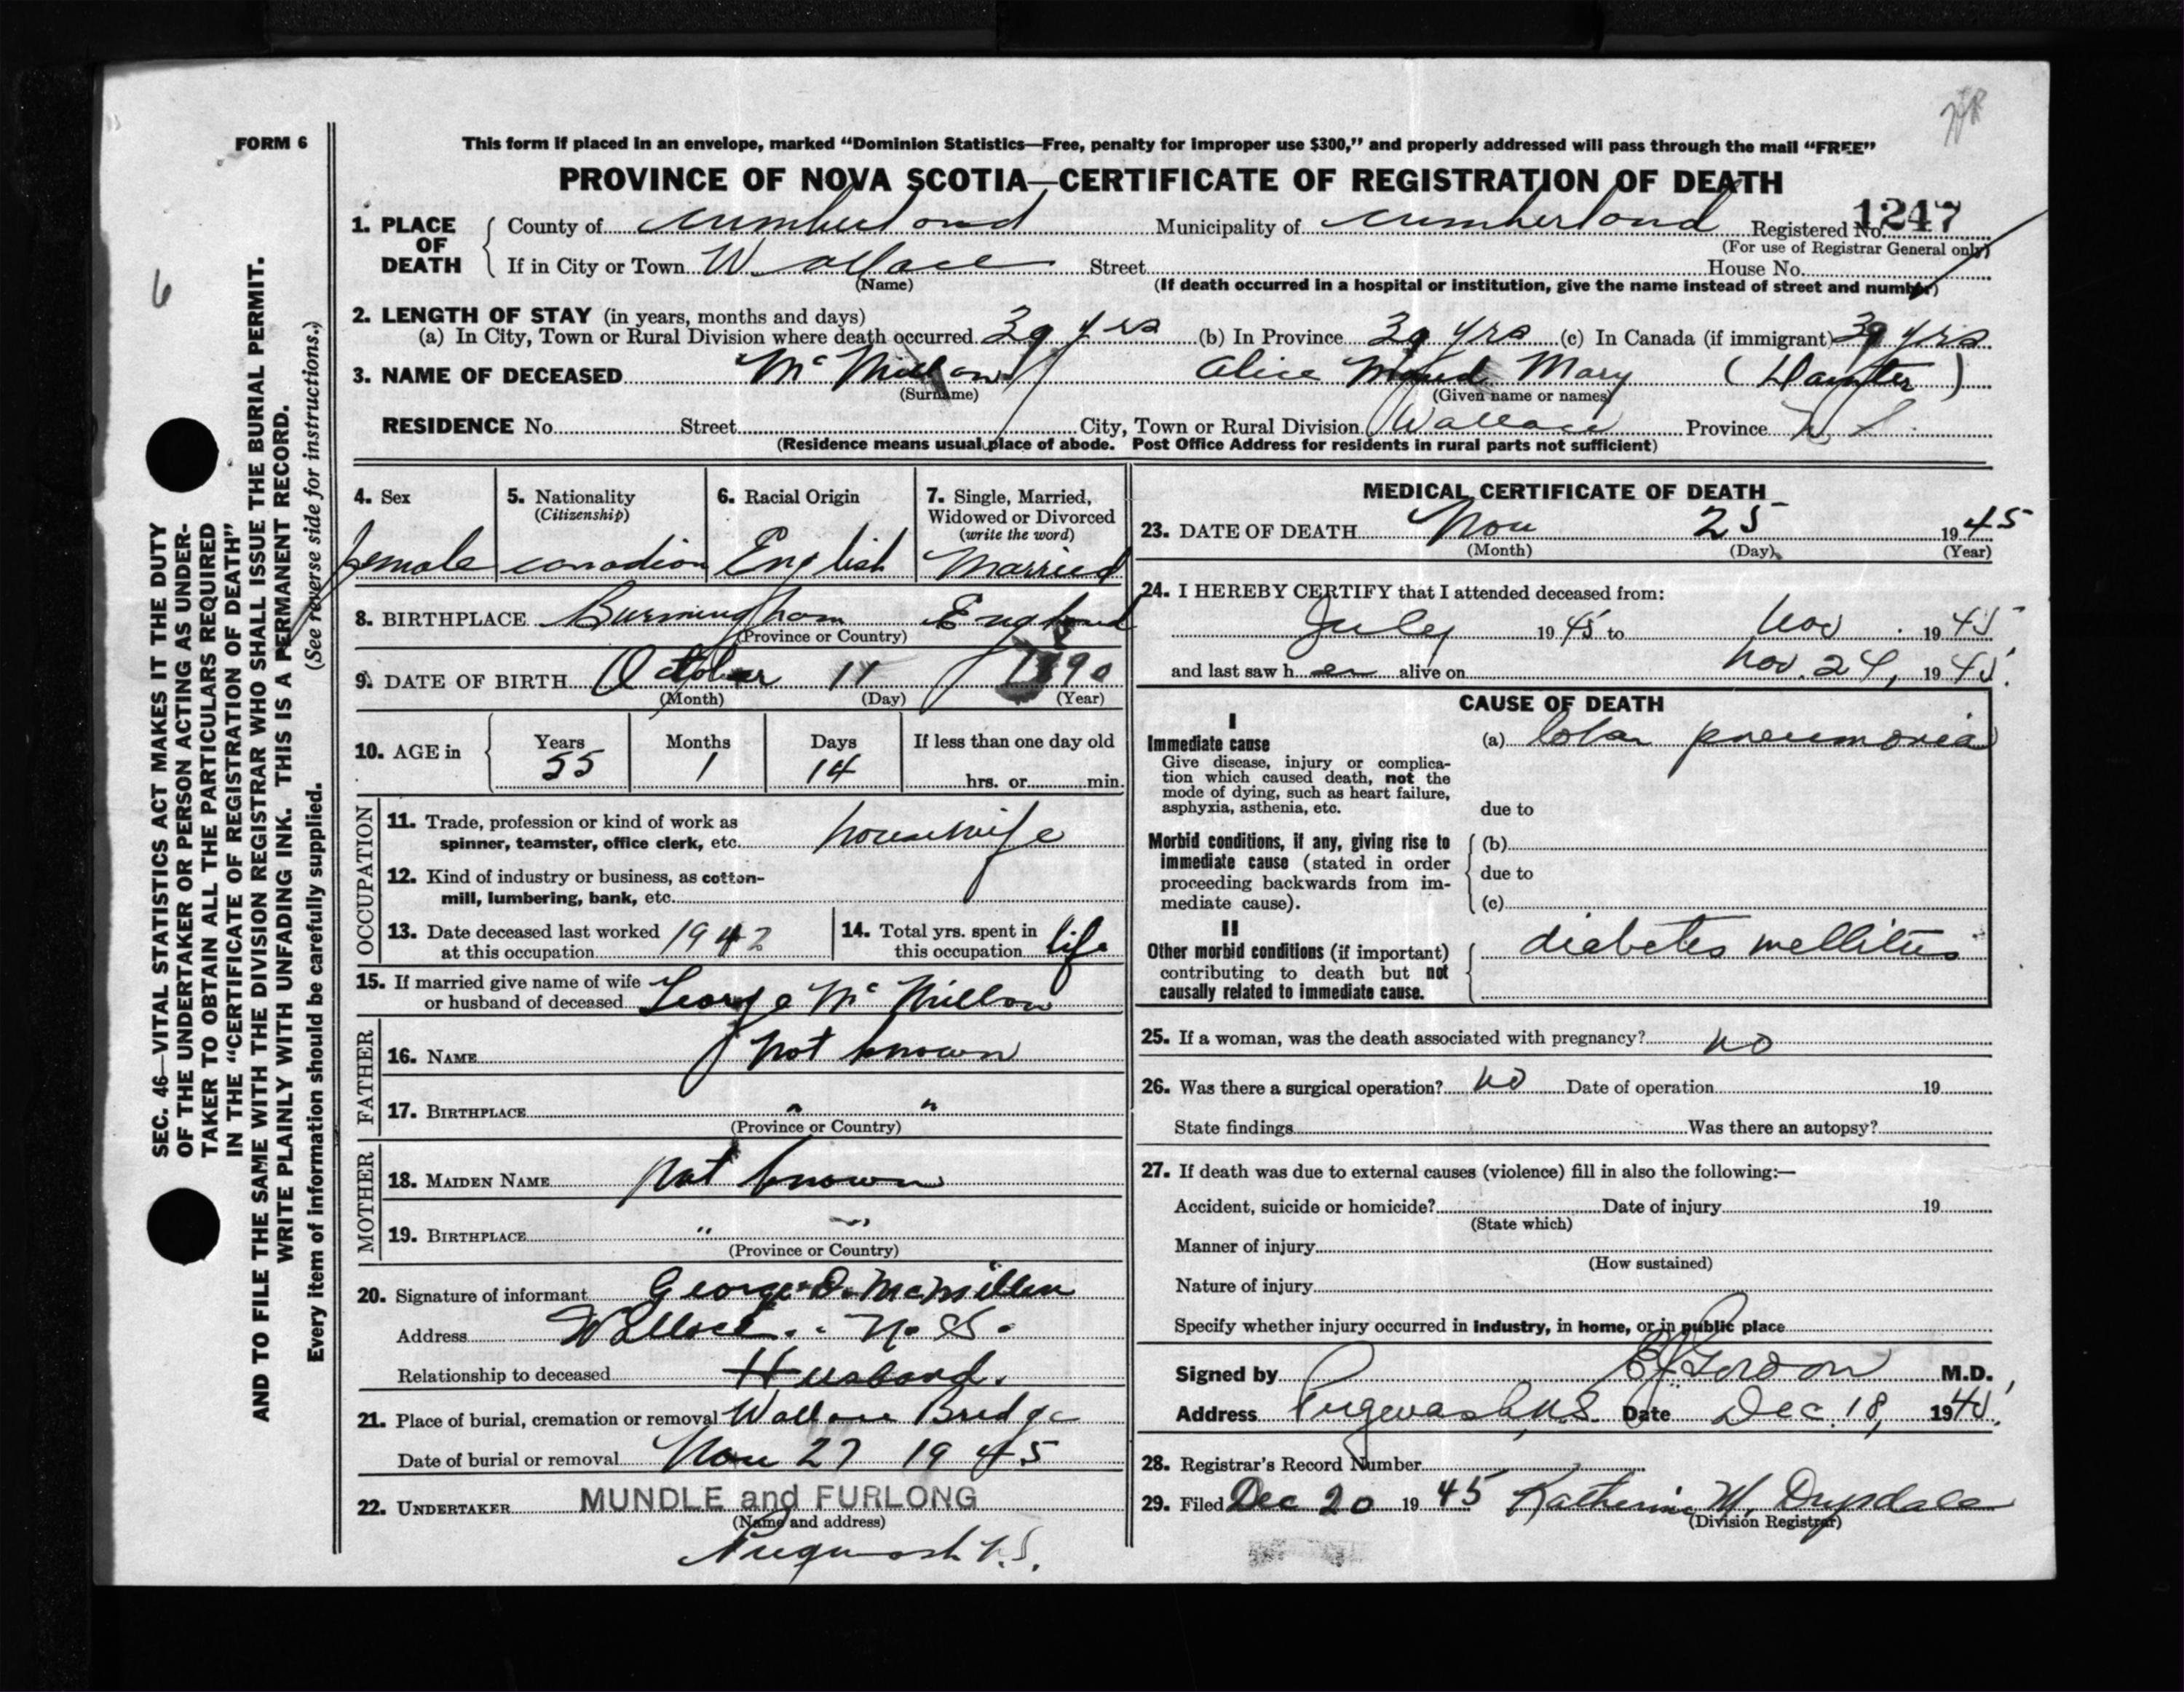 FORM 6
This form if placed in an envelope, marked “Dominion Statistics—Free, penalty for improper use $300,” and properly addressed will pass through the mail “FREE”
PROVINCE OF NOVA SCOTIA—CERTIFICATE OF REGISTRATION OF DEATH
1247
1. PLACE OF DEATH County of Cumberland Municipality of Cumberland Registered No.
(For use of Registrar General only)
If in City or Town Wallace Street House No.
(Name) (If death occurred in a hospital or institution, give the name instead of street and number)
2. LENGTH OF STAY (in years, months and days)
(a) In City, Town or Rural Division where death occurred 39 yrs (b) In Province 39 yrs (c) In Canada (if immigrant) 39 yrs
3. NAME OF DECEASED McMillan Alice Maud Mary ( )
(Surname) (Given name or names)
RESIDENCE No. Street City, Town or Rural Division Wallace Province N S
(Residence means usual place of abode. Post Office Address for residents in rural parts not sufficient)
4. Sex
female
5. Nationality
(Citizenship)
canadian
6. Racial Origin
English
7. Single, Married,
Widowed or Divorced
(write the word)
Married
8. BIRTHPLACE Burmingham England
(Province or Country)
9. DATE OF BIRTH October 11 1890
(Month) (Day) (Year)
10. AGE in Years Months Days If less than one day old
55 1 14 hrs. or min.
OCCUPATION
11. Trade, profession or kind of work as
spinner, teamster, office clerk, etc. housewife
12. Kind of industry or business, as cotton-
mill, lumbering, bank, etc.
13. Date deceased last worked
at this occupation 1942
14. Total yrs. spent in
this occupation life
15. If married give name of wife
or husband of deceased George McMillan
FATHER
16. NAME not known
17. BIRTHPLACE " "
(Province or Country)
MOTHER
18. MAIDEN NAME not known
19. BIRTHPLACE " "
(Province or Country)
20. Signature of informant George D. McMillan
Address Wallace. N. S.
Relationship to deceased Husband.
21. Place of burial, cremation or removal Wallace Bridge
Date of burial or removal Nov 27 1945
22. UNDERTAKER MUNDLE and FURLONG
(Name and address)
Pugwash N.S.
MEDICAL CERTIFICATE OF DEATH
23. DATE OF DEATH Nov 25 1945
(Month) (Day) (Year)
24. I HEREBY CERTIFY that I attended deceased from:
July 1945 to Nov 1945
and last saw her alive on Nov. 24, 1945.
CAUSE OF DEATH
I
Immediate cause
Give disease, injury or complica-
tion which caused death, not the
mode of dying, such as heart failure,
asphyxia, asthenia, etc.
(a) lobar pneumonia
due to
Morbid conditions, if any, giving rise to
immediate cause (stated in order
proceeding backwards from im-
mediate cause).
(b)
due to
(c)
II
Other morbid conditions (if important)
contributing to death but not
causally related to immediate cause.
diabetes mellitus
25. If a woman, was the death associated with pregnancy? no
26. Was there a surgical operation? no Date of operation 19
State findings Was there an autopsy?
27. If death was due to external causes (violence) fill in also the following:—
Accident, suicide or homicide? Date of injury 19
(State which)
Manner of injury
(How sustained)
Nature of injury
Specify whether injury occurred in industry, in home, or in public place
Signed by Gordon M.D.
Address Pugwash, N.S. Date Dec. 18, 1945.
28. Registrar's Record Number
29. Filed Dec 20 1945 Katherine W. Drysdale
(Division Registrar)
6
SEC. 46—VITAL STATISTICS ACT MAKES IT THE DUTY
OF THE UNDERTAKER OR PERSON ACTING AS UNDER-
TAKER TO OBTAIN ALL THE PARTICULARS REQUIRED
IN THE “CERTIFICATE OF REGISTRATION OF DEATH”
AND TO FILE THE SAME WITH THE DIVISION REGISTRAR WHO SHALL ISSUE THE BURIAL PERMIT.
WRITE PLAINLY WITH UNFADING INK. THIS IS A PERMANENT RECORD.
Every item of information should be carefully supplied. (See reverse side for instructions.)